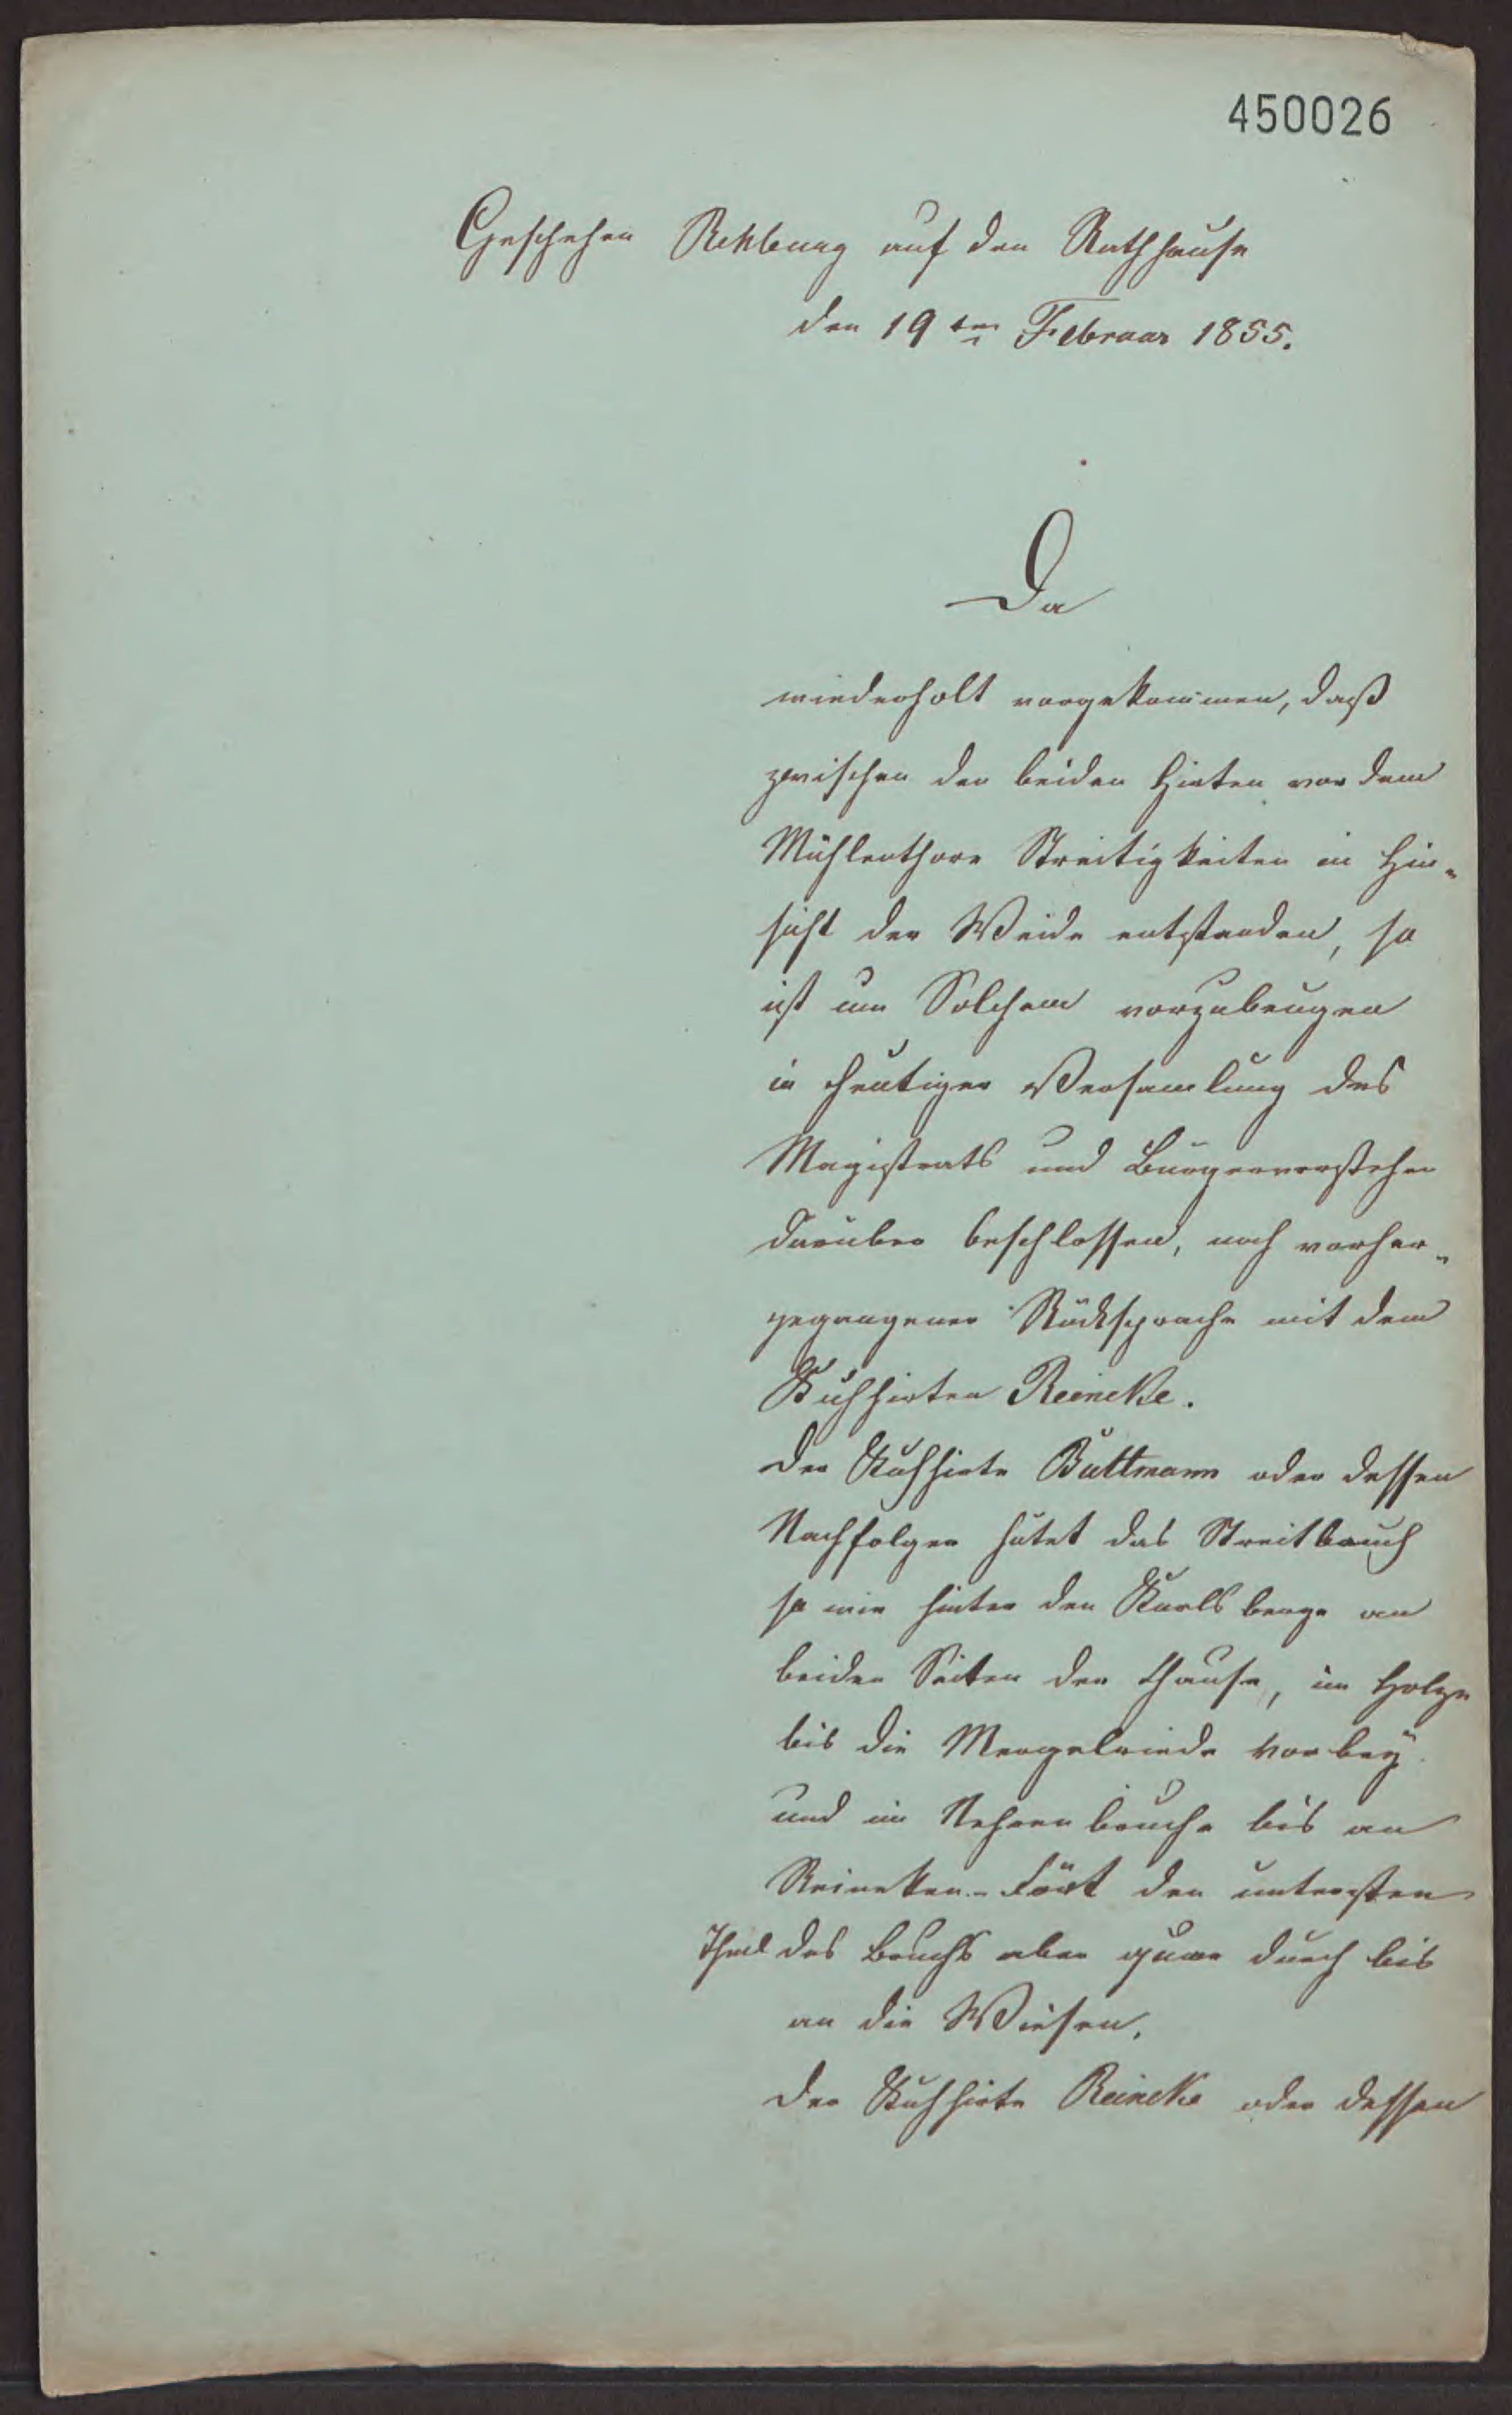 450026
Geschehen Rehburg auf den Rathhause
den 19ten Februar 1855.
Da
wiederholt vorgekommen, daß
zwischen den beiden Hirten vor dem
Mühlenthore Streitigkeiten in Hin-
sicht der Weide entstanden, so
ist um Solchem vorzubeugen
in heutiger Versamlung des
Magistrats und Bürgervorsteher
darüber beschlossen, nach vorher-
gegangener Rücksprache mit dem
Kuhhirten Reineke.
Der Kuhhirte Büttmann oder dessen
Nachfolger hütet das Streitbruch
so wie hinter den Karlsberge an
beiden Seiten der Chause, im Holze
bis die Mergelriede vorbey
und im Nehrenbruche bis an
Reineken-Fört den untersten
Theil des Bruchs aber quer durch bis
an die Wiesen.
Der Kuhhirte Reineke oder dessen